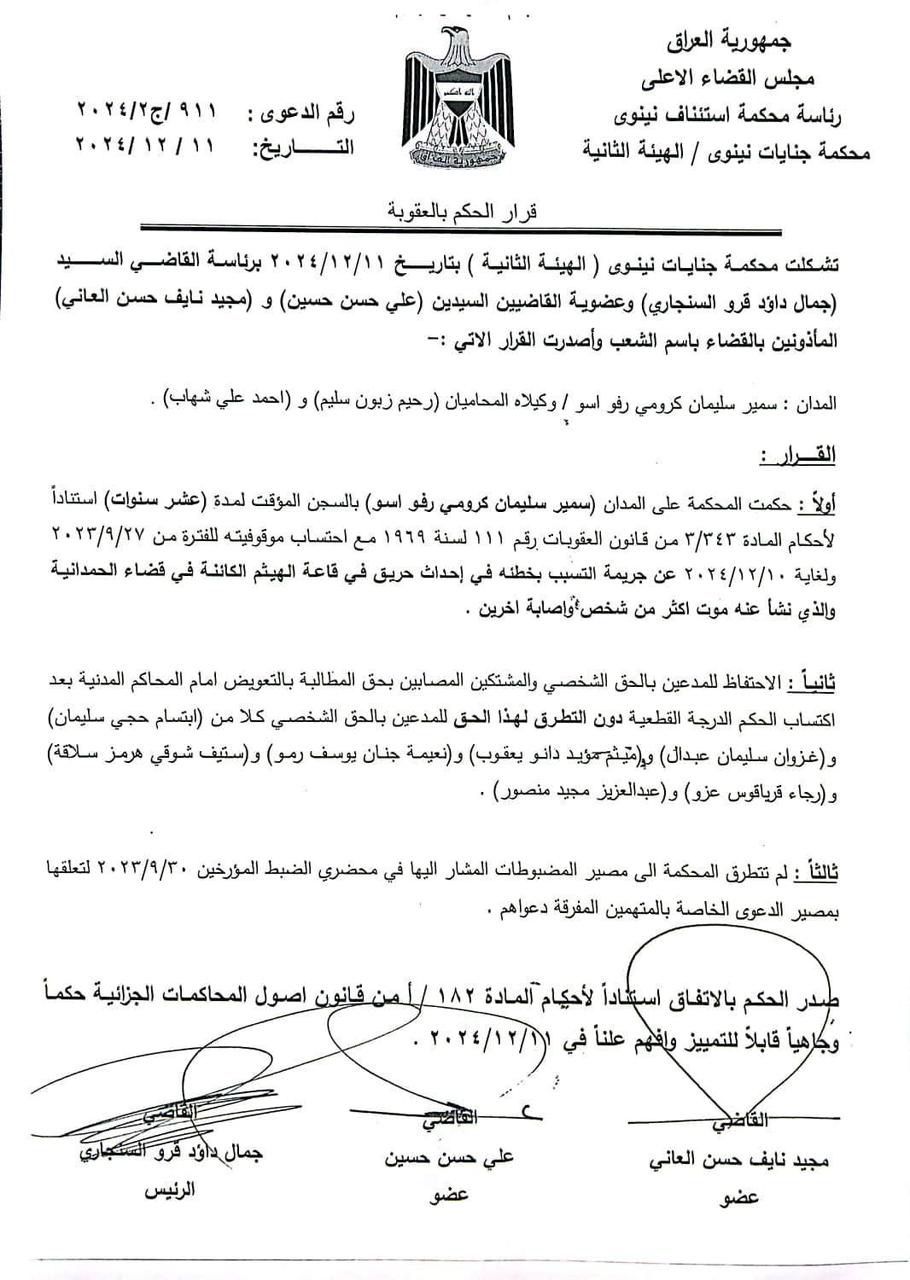 جمهورية العراق
مجلس القضاء الاعلى
رئاسة محكمة استئناف نينوى
محكمة جنايات نينوى / الهيئة الثانية
رقم الدعوى : ٩١١ /ج٢٠٢٤/٢
التـــــاريخ: ١١ / ١٢ /٢٠٢٤
الله اكبر
جمهورية العراق
قرار الحكم بالعقوبة
تشكلت محكمة جنايات نينوى ( الهيئة الثانية ) بتاريـــخ ٢٠٢٤/١٢/١١ برئاسة القاضـي الســـيد
(جمال داؤد قرو السنجاري) وعضوية القاضيين السيدين (علي حسن حسين) و (مجيد نايف حسن العاني)
المأذونين بالقضاء باسم الشعب وأصدرت القرار الاتي :–
المدان : سمير سليمان كرومي رفو اسو / وكيلاه المحاميان (رحيم زبون سليم) و (احمد علي شهاب) .
القـــرار :
أولاً : حكمت المحكمة على المدان (سمير سليمان كرومي رفو اسو) بالسجن المؤقت لمدة (عشر سنوات) استناداً
لأحكام المادة ٣/٣٤٣ من قانون العقوبات رقم ١١١ لسنة ١٩٦٩ مع احتساب موقوفيته للفترة من ٢٠٢٣/٩/٢٧
ولغاية ٢٠٢٤/١٢/١٠ عن جريمة التسبب بخطئه في إحداث حريق في قاعة الهيثم الكائنة في قضاء الحمدانية
والذي نشأ عنه موت اكثر من شخص واصابة اخرين .
ثانياً : الاحتفاظ للمدعين بالحق الشخصي والمشتكين المصابين بحق المطالبة بالتعويض امام المحاكم المدنية بعد
اكتساب الحكم الدرجة القطعية دون التطرق لهذا الحق للمدعين بالحق الشخصي كلا من (ابتسام حجي سليمان)
و(غزوان سليمان عبدال) و(ميثم مؤيد دانو يعقوب) و(نعيمة جنان يوسف رمو) و(ستيف شوقي هرمز سلاقة)
و(رجاء قرياقوس عزو) و(عبدالعزيز مجيد منصور) .
ثالثاً : لم تتطرق المحكمة الى مصير المضبوطات المشار اليها في محضري الضبط المؤرخين ٢٠٢٣/٩/٣٠ لتعلقها
بمصير الدعوى الخاصة بالمتهمين المفرقة دعواهم .
صدر الحكم بالاتفاق استناداً لأحكام المادة ١٨٢ / أ من قانون اصول المحاكمات الجزائية حكماً
وجاهياً قابلاً للتمييز وافهم علناً في ٢٠٢٤/١٢/١١ .
القاضي
مجيد نايف حسن العاني
عضو
القاضي
علي حسن حسين
عضو
القاضي
جمال داؤد قرو السنجاري
الرئيس